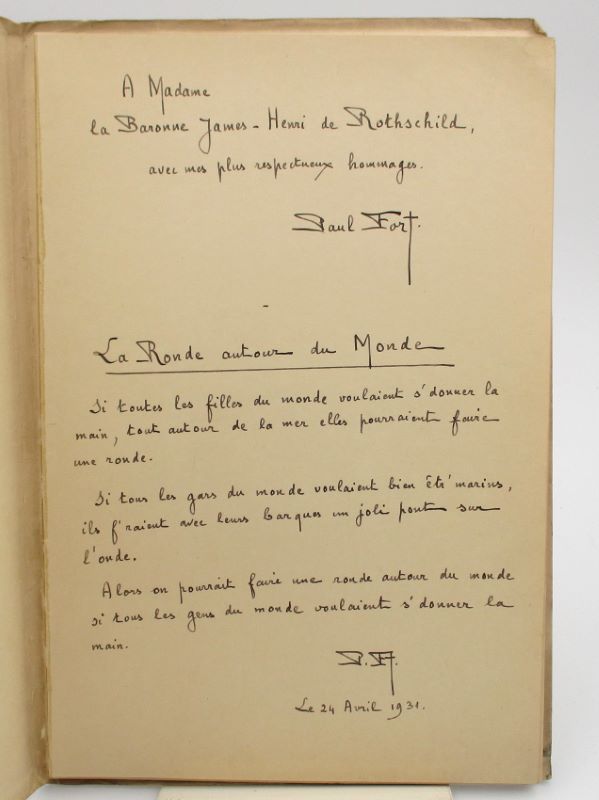 A Madame
la Baronne James-Henri de Rothschild,
avec mes plus respectueux hommages.
Paul Fort.
La Ronde autour du Monde
Si toutes les filles du monde voulaient s'donner la
main, tout autour de la mer elles pourraient faire
une ronde.
Si tous les gars du monde voulaient bien êtr' marins,
ils f'raient avec leurs barques un joli pont sur
l'onde.
Alors on pourrait faire une ronde autour du monde
si tous les gens du monde voulaient s'donner la
main.
P. F.
Le 24 Avril 1931.